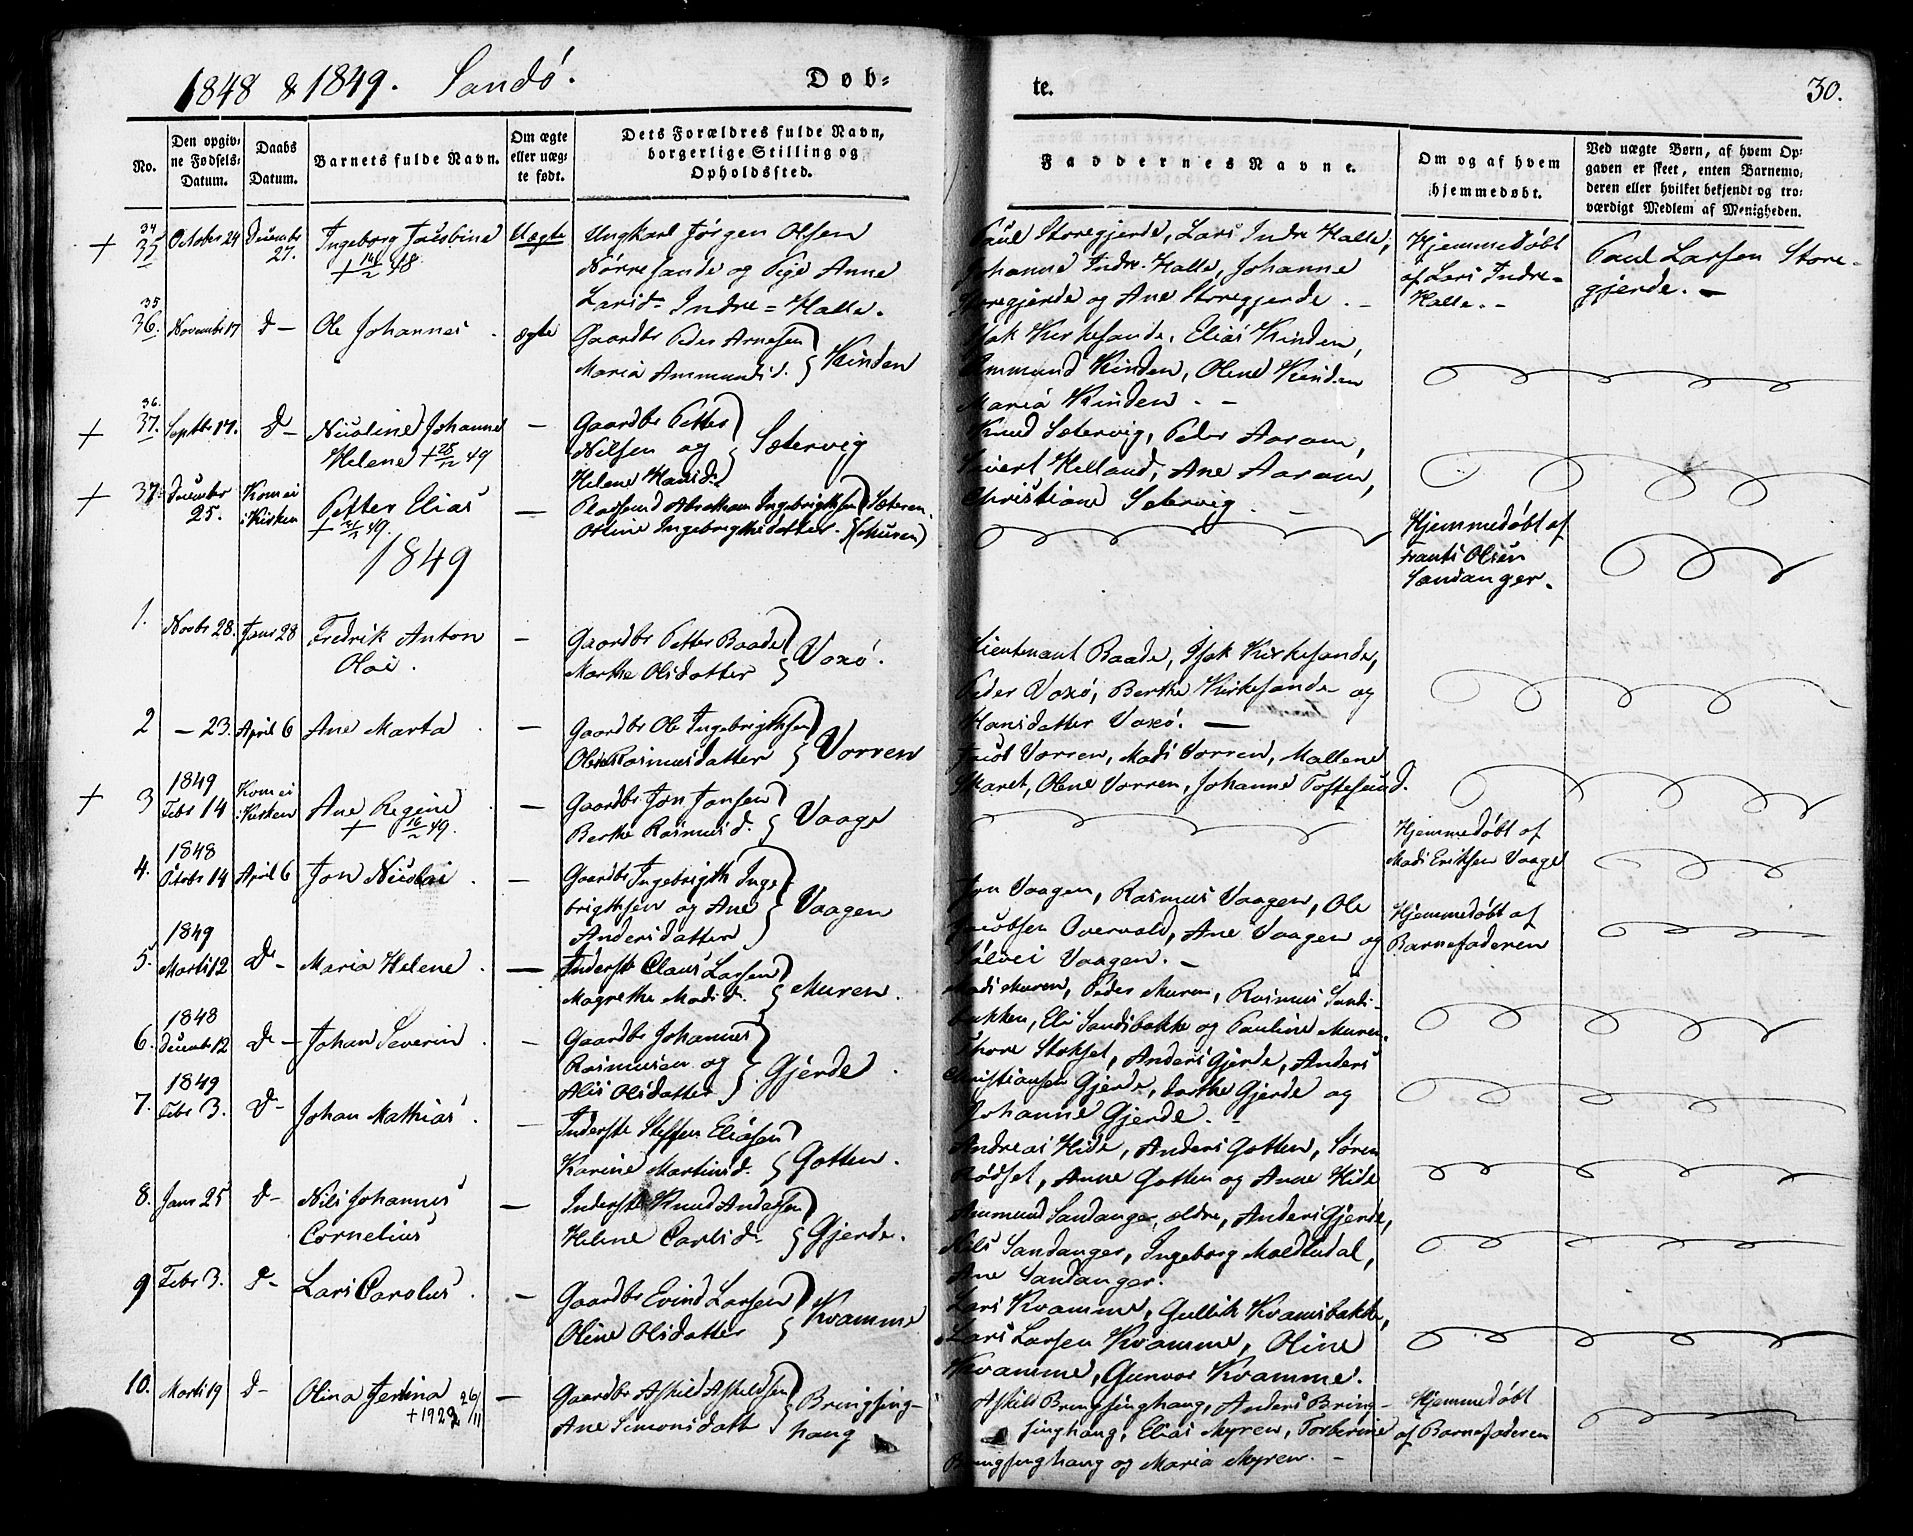 1848 & 1849. Sandö. Døb=
te. 30.
No.
Den opgiv=
ne Fødsels=
Datum.
Daabs
Datum.
Barnets fulde Navn.
Om ægte
eller uæg=
te født.
Dets Forældres fulde Navn,
borgerlige Stilling og
Opholdssted.
Faddernes Navne.
Om og af hvem
hjemmedøbt.
Ved uægte Børn, af hvem Op=
gaven er skeet, enten Barnemo=
deren eller hvilket bekjendt og tro=
værdigt Medlem af Menigheden.
+ 34 35 October 24 December 27. Ingeborg Uægte Ungkarl Jörgen Olsen
Nörresande og Pige Anne
Larsd. Indre=Halle.
Paul Storegjerde, Lars Indre Halle,
Johanne Indre-Halle, Johanne
Storegjerde og Ane Storegjerde. -
Hjemmedöbt
af Lars Indre=
Halle. -
Paul Larsen Store-
gjerde. -
35 36. November 17 d- Ole Johannes. ægte Gaardbr Peder Arnesen
Maria Ammundsd. } Kinden
Isak Kirkesande, Elias Kinden,
Ammund Kinden, Oline Kinden
Maria Kinden. -
+ 36. 37. Septbr 17. d- Nicoline Johanne - Gaardbr Petter
Helene + 28/12 49 Nilsen og } Sætervig
Helene Hansd.
Knud Sætervig, Peder Aaram,
Sivert Helland, Ane Aaram,
Christiane Setervig. -
+ 37. December 25. Kom ei i Kirken Petter Elias - Pladsmd Abraham Ingebrigthsen } Sæteren
Oline Ingebrigthsdatter.
Hjemmedöbt af
Frants Olsen
Sandanger.
1849
1. Novbr 28. Janr 28 Fredrik Anton - Gaardbr Petter Baade
Olai. Marthe Olsdatter } Voxö.
Lieutenant Baade, Isak Kirkesande,
Peder Voxö, Berthe Kirkesande og
Hansdatter Voxö. -
2 - 23. April 6 Ane Marta. - Gaardbr Ole Ingebrigthsen
Rasmusdatter } Vorren
Jacob Vorren, Mads Vorren, Mallene
Skaret, Olene Vorren, Johanne Toftesund.
+ 3 1849 Febr 14 Kom ei i Kirken Ane Regine. - Gaardbr Jon Jonsen
+ 16/2 49. Berthe Rasmusd. } Vaage
Hjemmedöbt af
Mads Eriksen Vaage
4. 1848 Octobr 14 April 6 Jon Nicolai. - Gaardbr Ingebrigth Inge-
brigthsen og Ane } Vaagen
Andersdatter
Jon Vaagen, Rasmus Vaagen, Ole
Jacobsen Overvold, Ane Vaagen og
Sölvei Vaagen. -
Hjemmedöbt af
Barnefaderen
5. 1849 Marts 12 d- Maria Helene. - Inderste Claus Larsen
Magrethe Madsd. } Muren.
Mads Muren, Peder Muren, Rasmus Sands-
bakken, Eli Sandsbakke og Pauline Muren.
6. 1848 Decembr 12 d- Johan Severin. - Gaardbr Johannes
Rasmusen og } Gjerde.
Alis Olsdatter
Thore Stokset, Anders Gjerde, Anders
Christiansen Gjerde, Dorthe Gjerde og
Johanne Gjerde. -
7. 1849 Febr 3. d- Johan Mathias. - Inderste Steffen Eliasen
Karine Martinsd. } Gotten.
Andreas Hide, Anders Gotten, Sören
Rödset, Anne Gotten og Anne Hide
8. Janr 25 d- Nils Johannes - Inderste Knud Andersen
Cornelius Helene Carlsd. } Gjerde.
Ammund Sandanger, ældre, Anders Gjerde,
Nils Sandanger, Ingeborg Moldtudal,
Ane Sandanger.
9 Febr 3. d- Lars Carolus. - Gaardbr Evind Larsen
Oline Olsdatter } Kvamme
Lars Kvamme, Gullik Kvamsbakke,
Lars Larsen Kvamme, Oline
Kvamme, Gunvor Kvamme.
10. Marts 19 d- Olina Jertina - Gaardbr Askild Askildsen
+ 1922 26/11 Ane Simonsdatt } Bringsing-
haug
Askild Bringsinghaug, Anders Bring-
singhaug, Elias Myren, Torberine
Bringsinghaug og Maria Myren. -
Hjemmedöbt
af Barnefaderen